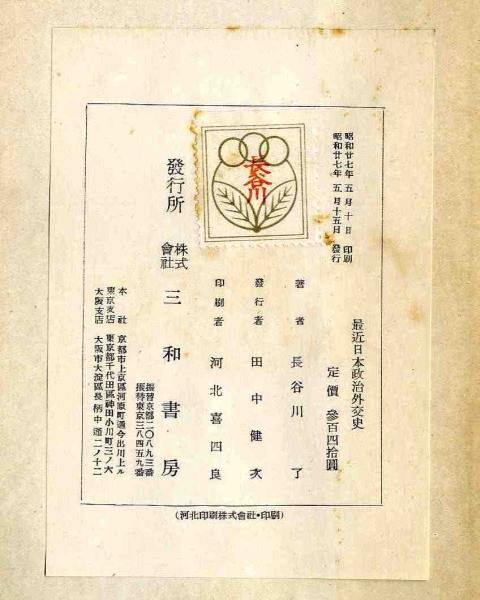 最近日本政治外交史
定價 參百四拾圓
昭和廿七年 五月十日 印刷
昭和廿七年 五月十五日 發行
長谷川
著者 長谷川 了
發行者 田中健次
印刷者 河北喜四良
發行所 株式會社 三和書房
振替京都二〇八九三番
振替東京三八四五九番
本社 京都市上京區河原町通今出川上ル
東京支店 東京都千代田區神田小川町三ノ六
大阪支店 大阪市大淀區長柄中通二ノ十二
(河北印刷株式會社・印刷)